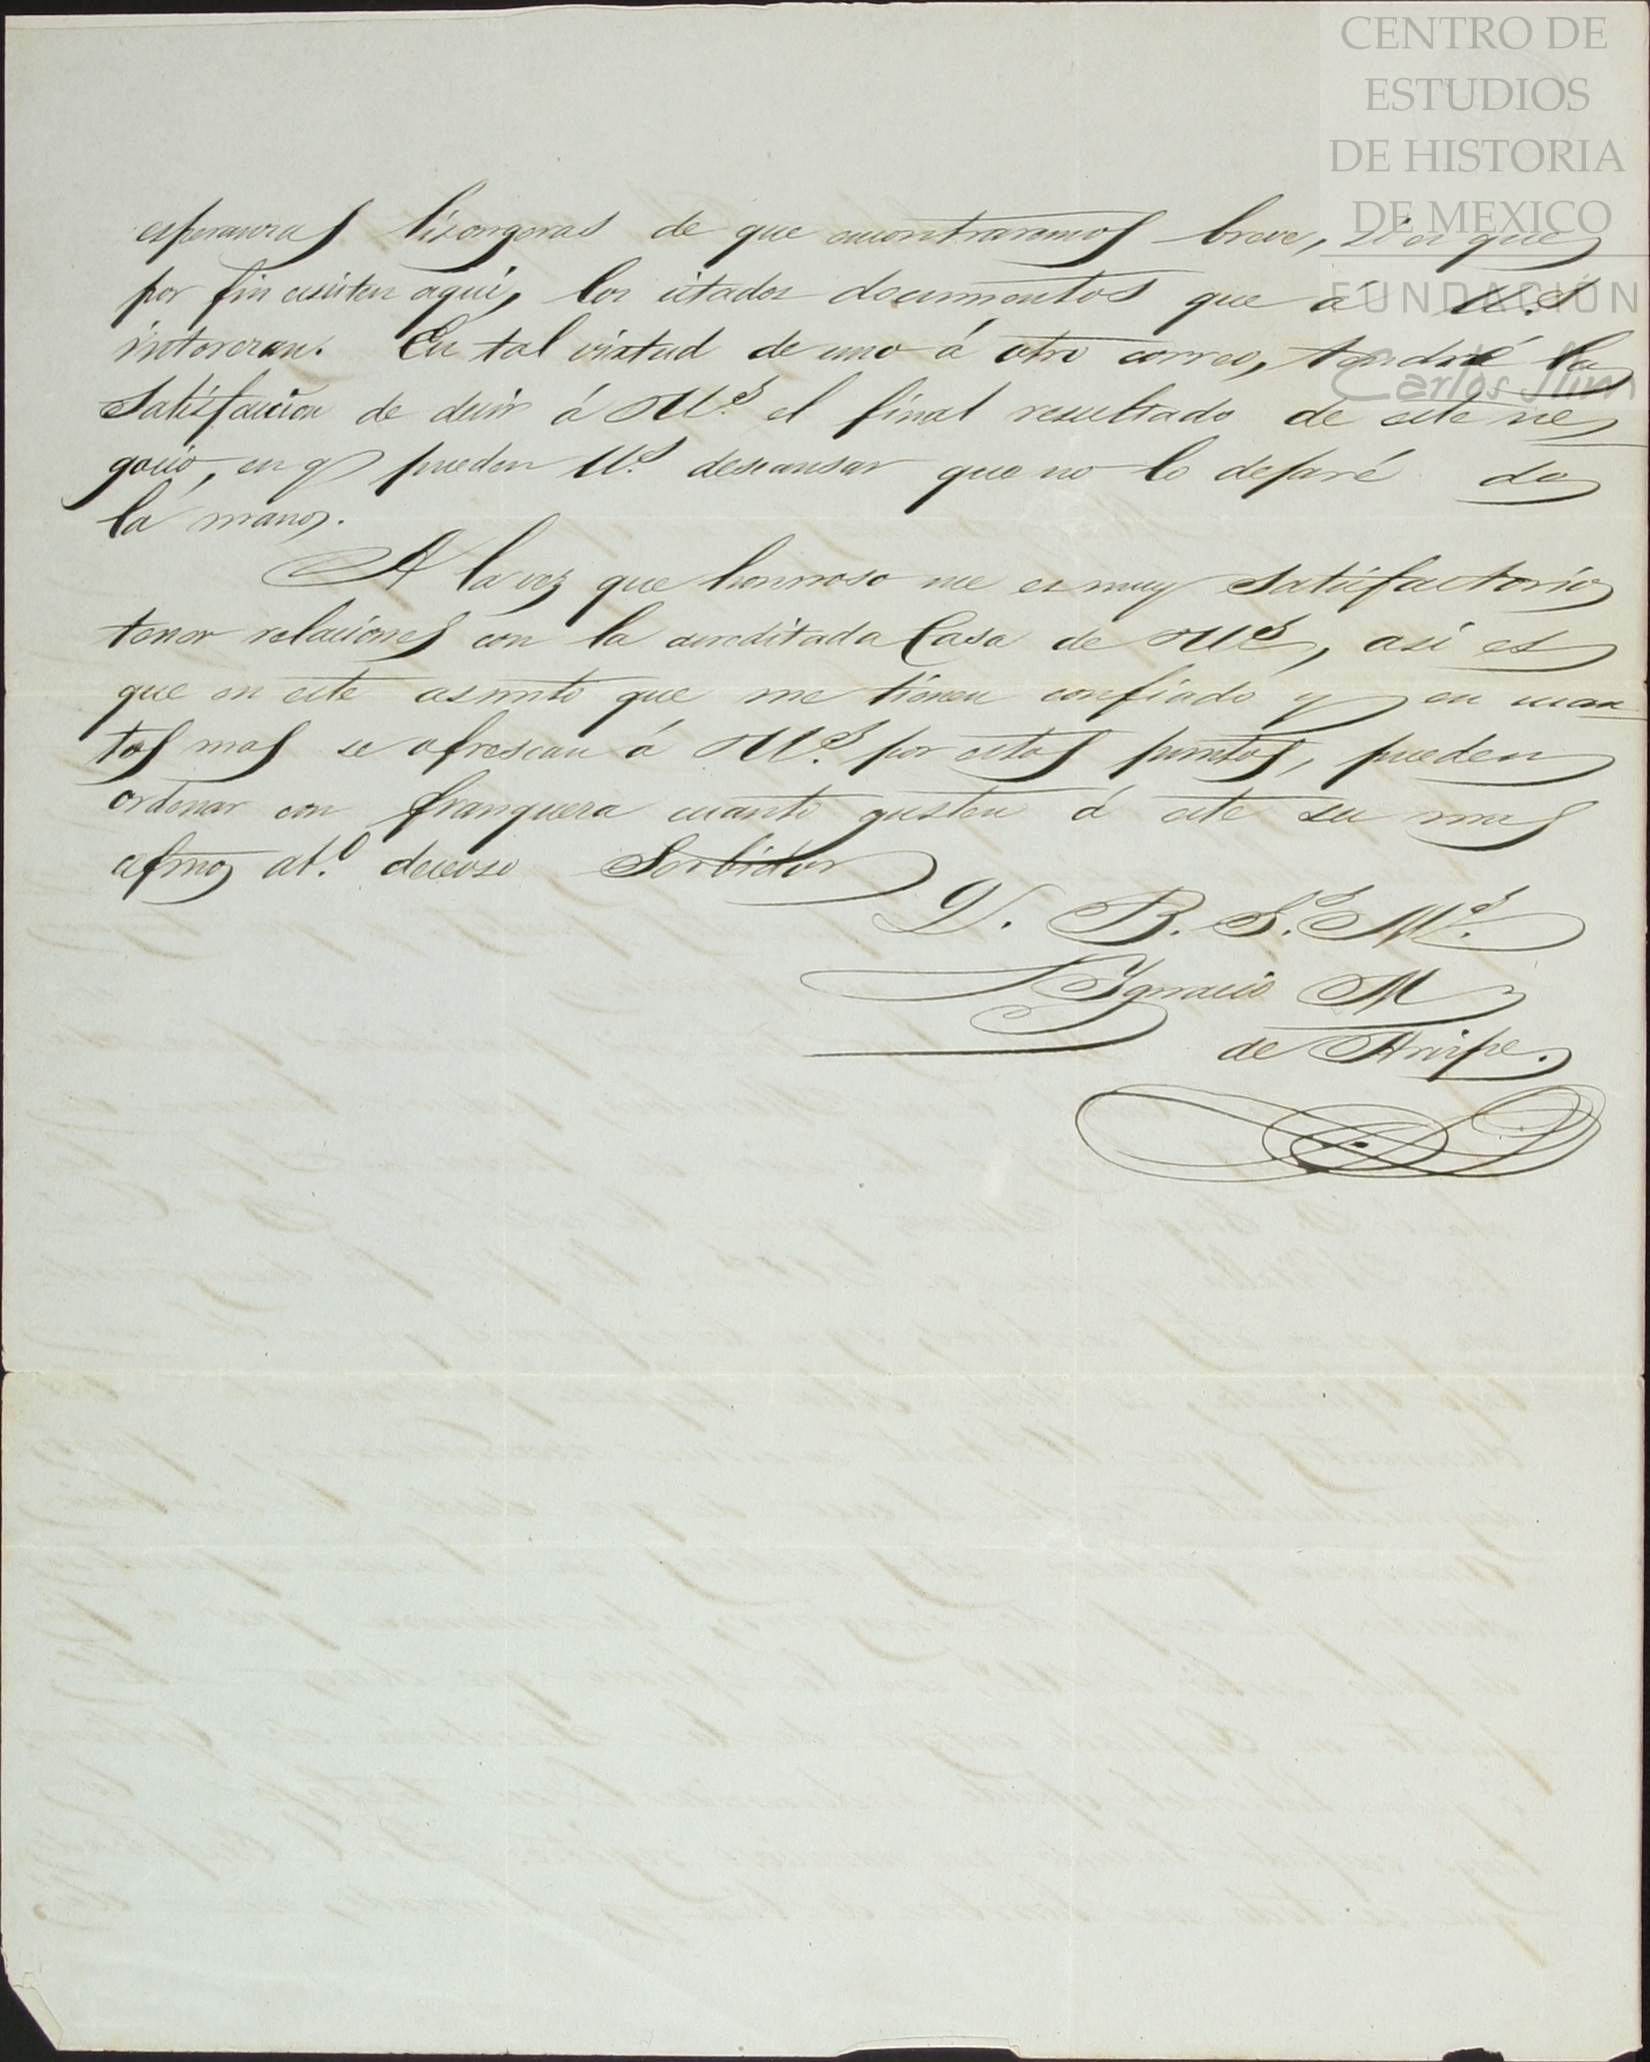 CENTRO DE
ESTUDIOS
DE HISTORIA
DE MEXICO
FUNDACIÓN
Carlos Slim
esperanzas lisongeras de que encontraremos breve, si es que
por fin ecsisten aqui, los citados documentos que á U.s
interezan. En tal virtud de uno á otro correo, tendré la
Satisfaccion de decir á UU.s el final resultado de este ne
gocio, en q pueden U.s descansar que no lo dejaré de
la mano.
A la voz que honrroso me es muy Satisfactorio
tener relaciones con la acreditada Casa de UU.s, asi es
que en este asunto que me tienen confiado y en cuan
tos mas se ofrescan á UU.s por estos puntos, pueden
ordenar con franqueza cuanto gusten á este su mas
afmo at.o decoso Serbidor
Q. B. S.s M.s
Ygnacio M
de Arispe.